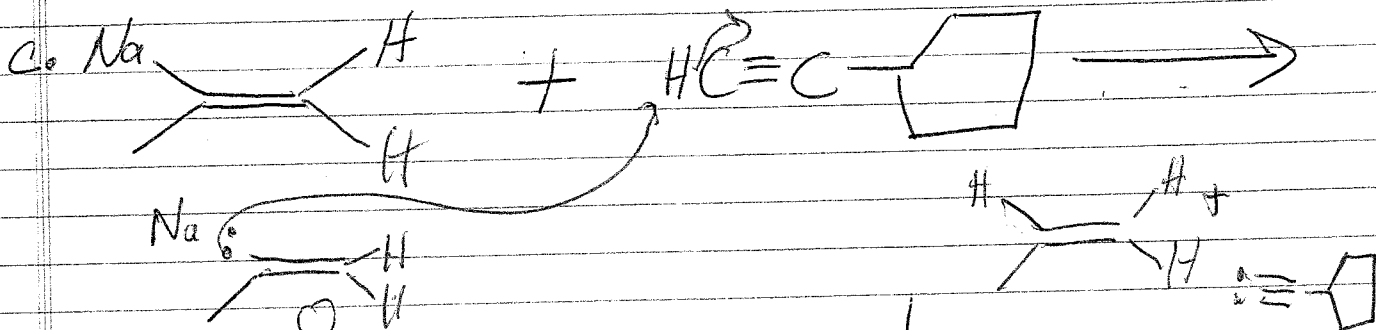 c. Na H + HC≡C
H
Na : H H H +
H H :